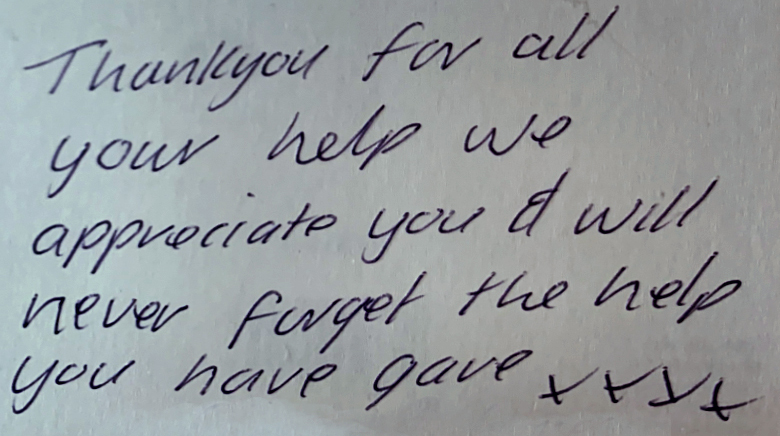 Thankyou for all
your help we
appreciate you & will
never forget the help
you have gave xxxx